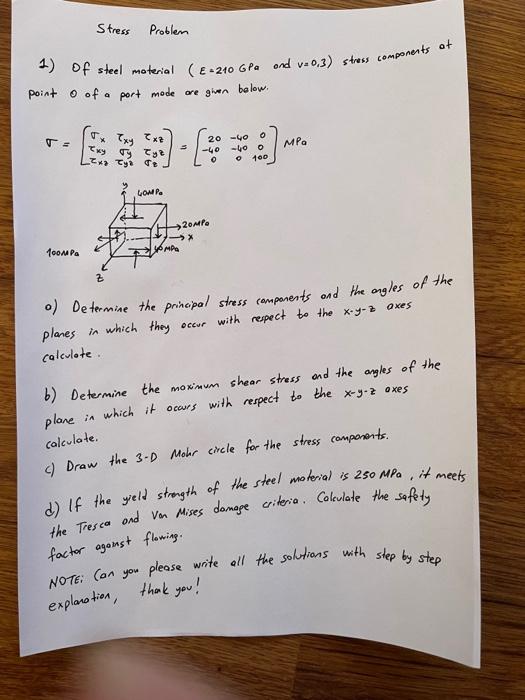 Stress Problem
1) Of steel material (E=210 GPa and v=0,3) stress components at
point O of a part made are given below.
σ = [σx τxy τxz; τxy σy τyz; τxz τyz σz] = [20 -40 0; -40 -40 0; 0 0 100] MPa
y
40MPa
20MPa
x
100MPa
40MPa
z
a) Determine the principal stress components and the angles of the
planes in which they occur with respect to the x-y-z axes
calculate.
b) Determine the maximum shear stress and the angles of the
plane in which it occurs with respect to the x-y-z axes
calculate.
c) Draw the 3-D Mohr circle for the stress components.
d) If the yield strength of the steel material is 250 MPa, it meets
the Tresca and Von Mises damage criteria. Calculate the safety
factor against flowing.
NOTE: Can you please write all the solutions with step by step
explanation, thank you!